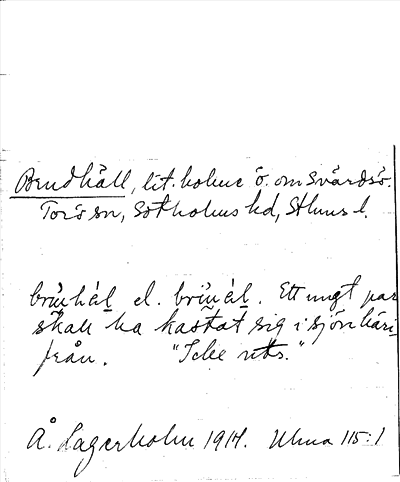 Brudhäll, lit. holme ö. om Svärdsö.
Torö sn, Sotholms hd, Sthlms l.
el. Ett ungt par
skall ha kastat sig i sjön häri-
från. "Icke uts."
Å. Lagerholm 1914. Uhma 115:1